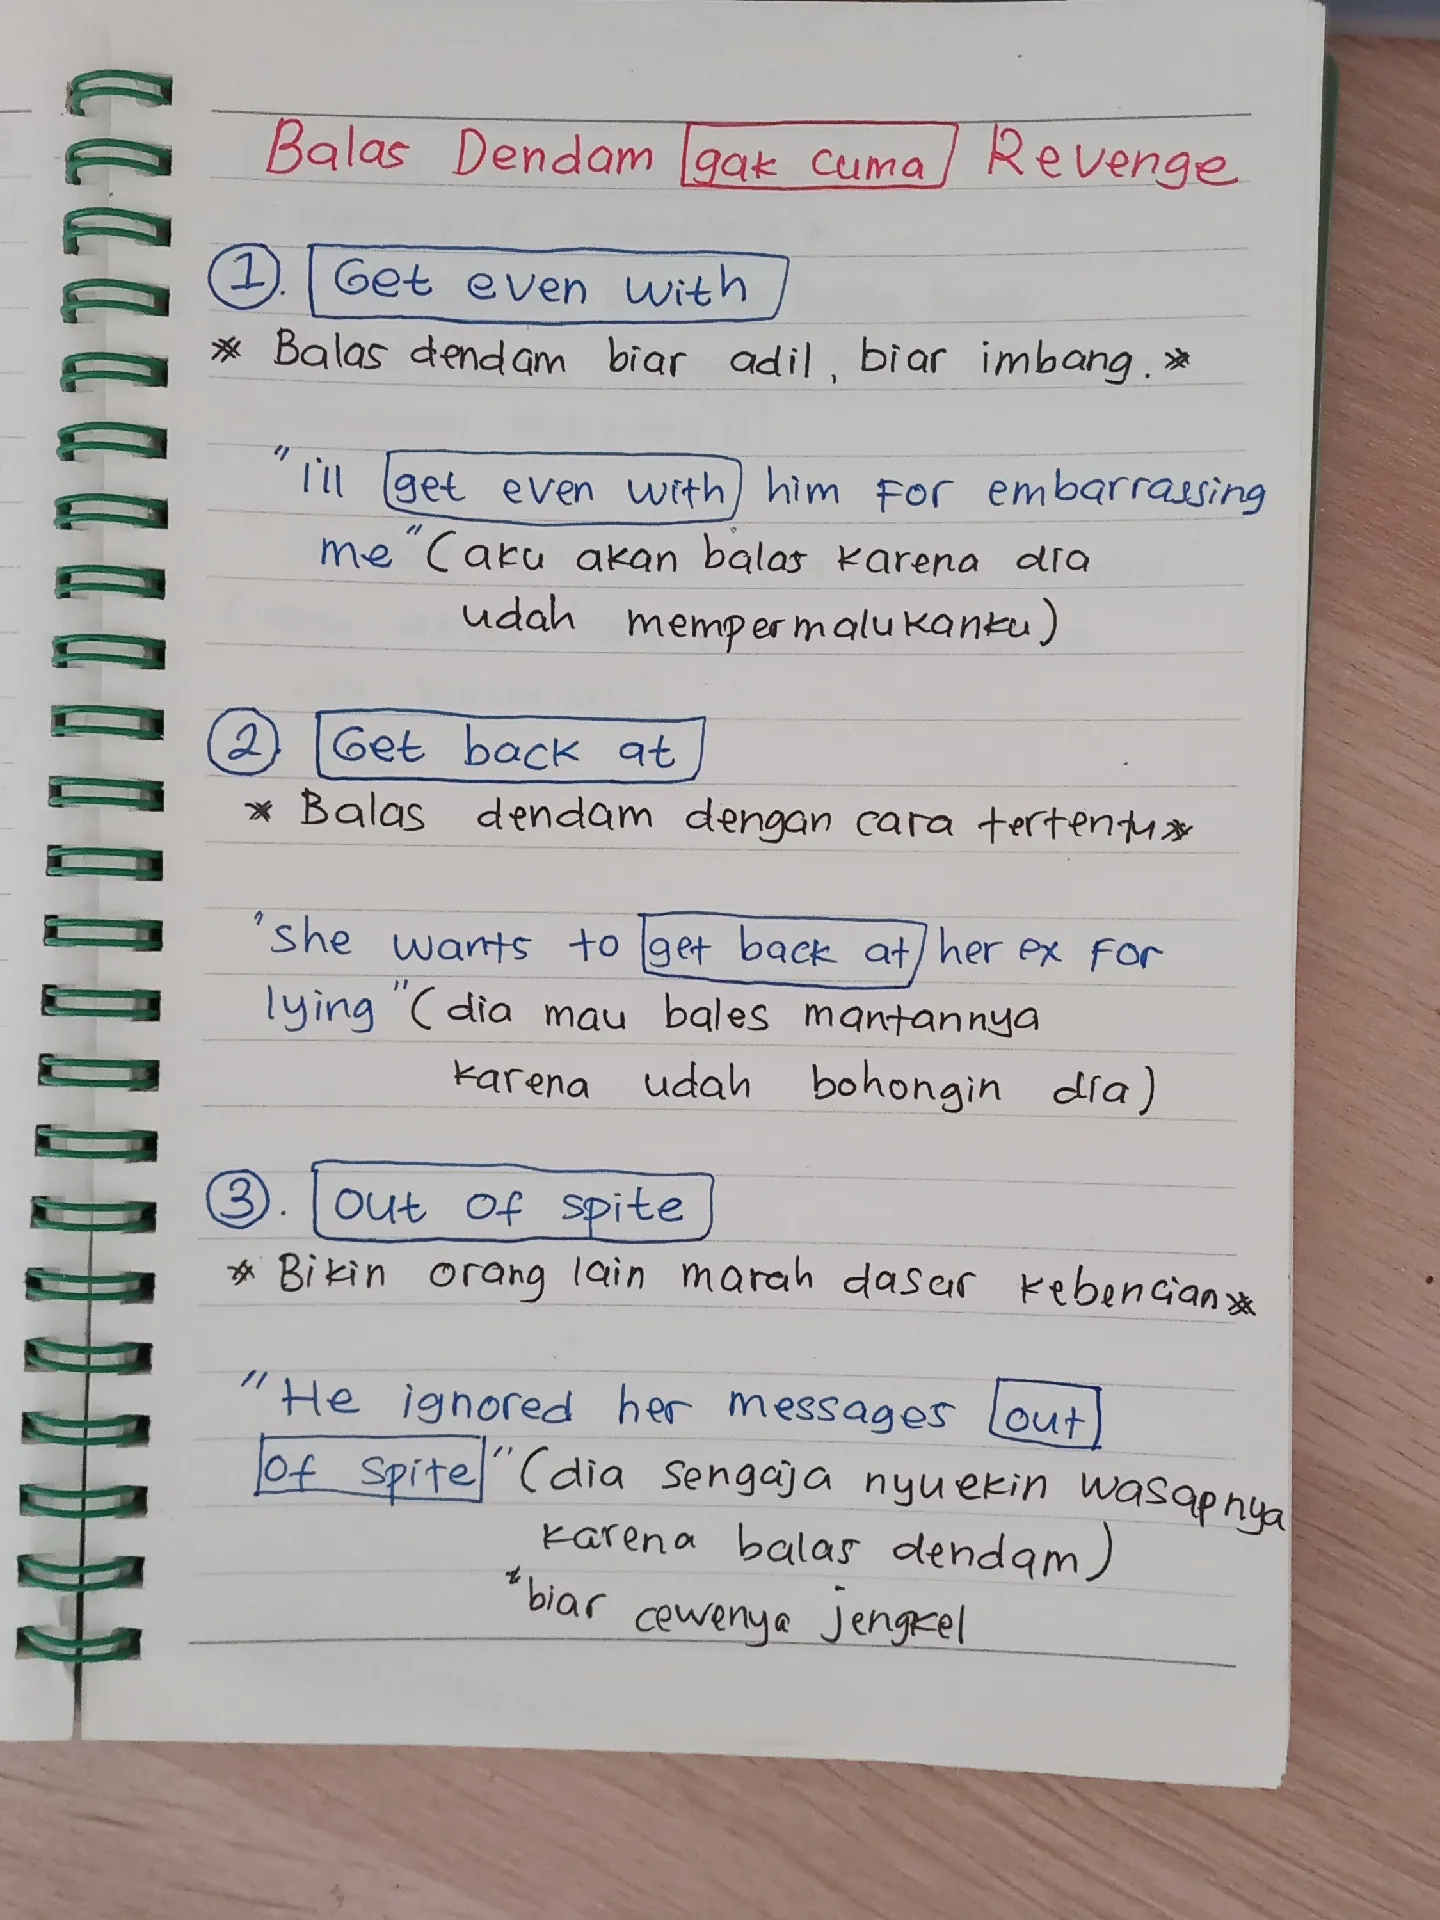 Balas Dendam gak cuma Revenge
1. Get even with
* Balas dendam biar adil, biar imbang. *
"I'll get even with him for embarrassing
me" (aku akan balas karena dia
udah mempermalukanku)
2 Get back at
* Balas dendam dengan cara tertentu *
"she wants to get back at her ex for
lying" (dia mau bales mantannya
karena udah bohongin dia)
3. out of spite
* Bikin orang lain marah dasar kebencian *
"He ignored her messages out
of spite" (dia sengaja nyuekin wasapnya
karena balas dendam)
*biar cewenya jengkel